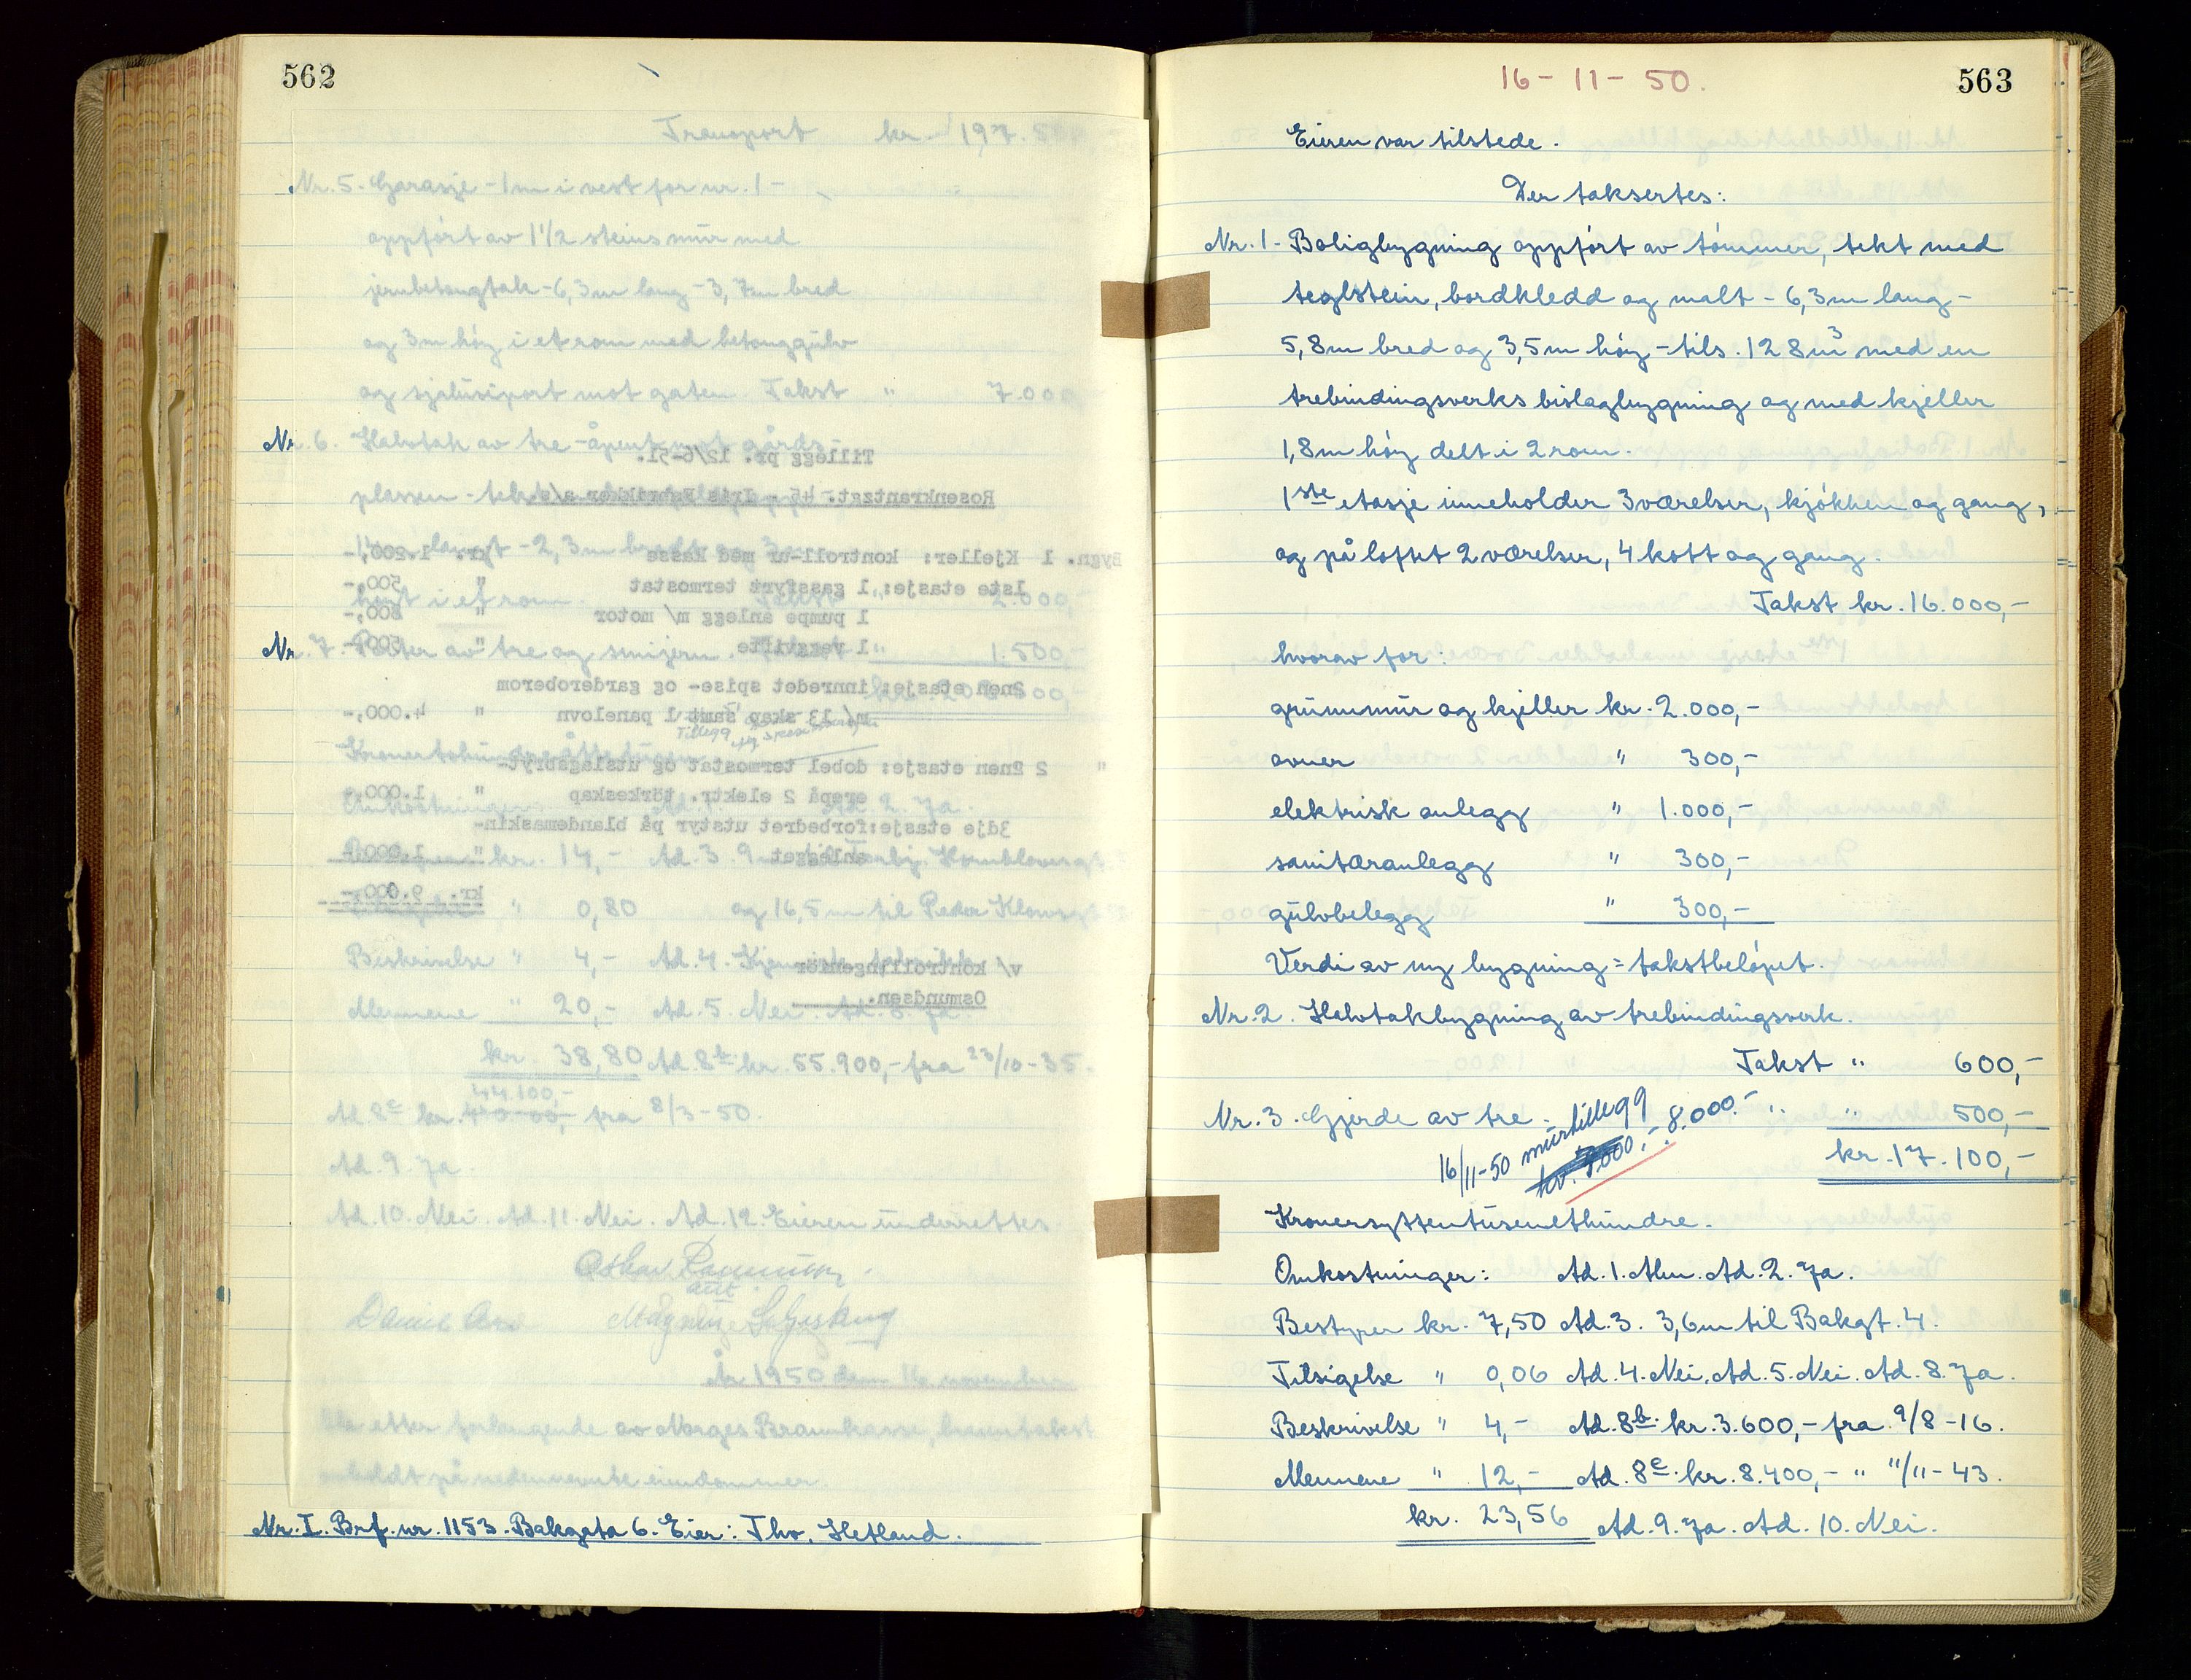 562
Transport kr. 197.500,-
Nr. 5. Garasje - 1 m i vest for nr. 1 -
oppført av 1 1/2 steins mur med
jernbetongtak - 6,3 m lang - 3,7 m bred
og 3 m høy i et rom med betonggulv
mot gaten. Takst " 7.000,-
Nr. 6. Halvtak av tre - åpent mot gårds-
plassen -
Tillegg pr. 12/6-51.
Rosenkrantzgt. 45 - Iris Fabrikker a/s.
Bygn. 1 Kjeller: kontroll-ur med kasse kr. 1.200,-
1ste etasje: 1 gassfyrt termostat " 500,-
1 pumpe anlegg m/ motor " 800,-
1 veggvifte " 500,-
2nen etasje: innredet spise- og garderoberom
m/ 13 skap samt 1 panelovn " 4.000,-
" 2 2nen etasje: dobel termostat og utslagsbryt-
erepå 2 elektr. törkeskap " 1.000,-
3dje etasje: forbedret utstyr på blandemaskin-
anlegget " 1.000,-
kr. 9.000,-
v/ kontrollingeniør
Osmundsen.
høyt i et rom. 2.000,-
Nr. 7. Porter av tre og smijern. " 1.500,-
Omkostninger: Ad. 2. Ja.
kr. 14,- Ad. 3.
" 0,80 og 16,5 m til Peder Klowsgt.
Beskrivelse " 4,- Ad. 4.
Mennene " 20,- Ad. 5. Nei. Ad. 8. Ja.
kr. 38,80 Ad. 8b kr. 55.900,- fra 23/10-35.
44.100,-
Ad. 8c kr. fra 8/3-50.
Ad. 9. Ja.
Ad. 10. Nei. Ad. 11. Nei. Ad. 12. Eieren underrettes.
År 1950 den 16. november
ble etter forlangende av Norges Brannkasse, branntakst
avholdt på nedennevnte eiendommer.
Nr. I. Brf. nr. 1153. Bakgata 6. Eier: Thv. Hetland.
16-11-50.
563
Eieren var tilstede.
Der taksertes:
Nr. 1 - Boligbygning oppført av tømmer, tekt med
teglstein, bordkledd og malt - 6,3 m lang -
5,8 m bred og 3,5 m høy - tils. 128 m3 med en
trebindingsverks bislagbygning og med kjeller
1,8 m høy delt i 2 rom.
1ste etasje inneholder 3 værelser, kjøkken og gang,
og på loftet 2 værelser, 4 kott og gang.
Takst kr. 16.000,-
hvorav for:
grunnmur og kjeller kr. 2.000,-
ovner " 300,-
elektrisk anlegg " 1.000,-
sanitæranlegg " 300,-
gulvbelegg " 300,-
Verdi av ny bygning = takstbeløpet.
Nr. 2. Halvtakbygning av trebindingsverk.
Takst " 600,-
Nr. 3. Gjerde av tre. " " 500,-
16/11-50 murtillegg kr. 7000,- 8.000.-
kr. 17.100,-
Kronersyttentusenethundre.
Omkostninger: Ad. 1. Alm. Ad. 2. Ja.
Bestyrer kr. 7,50 Ad. 3. 3,6 m til Bakgt. 4.
Tilsigelse " 0,06 Ad. 4. Nei. Ad. 5. Nei. Ad. 8. Ja.
Beskrivelse " 4,- Ad. 8b. kr. 3.600,- fra 9/8-16.
Mennene " 12,- Ad. 8c. kr. 8.400,- " 11/11-43.
kr. 23,56 Ad. 9. Ja. Ad. 10. Nei.